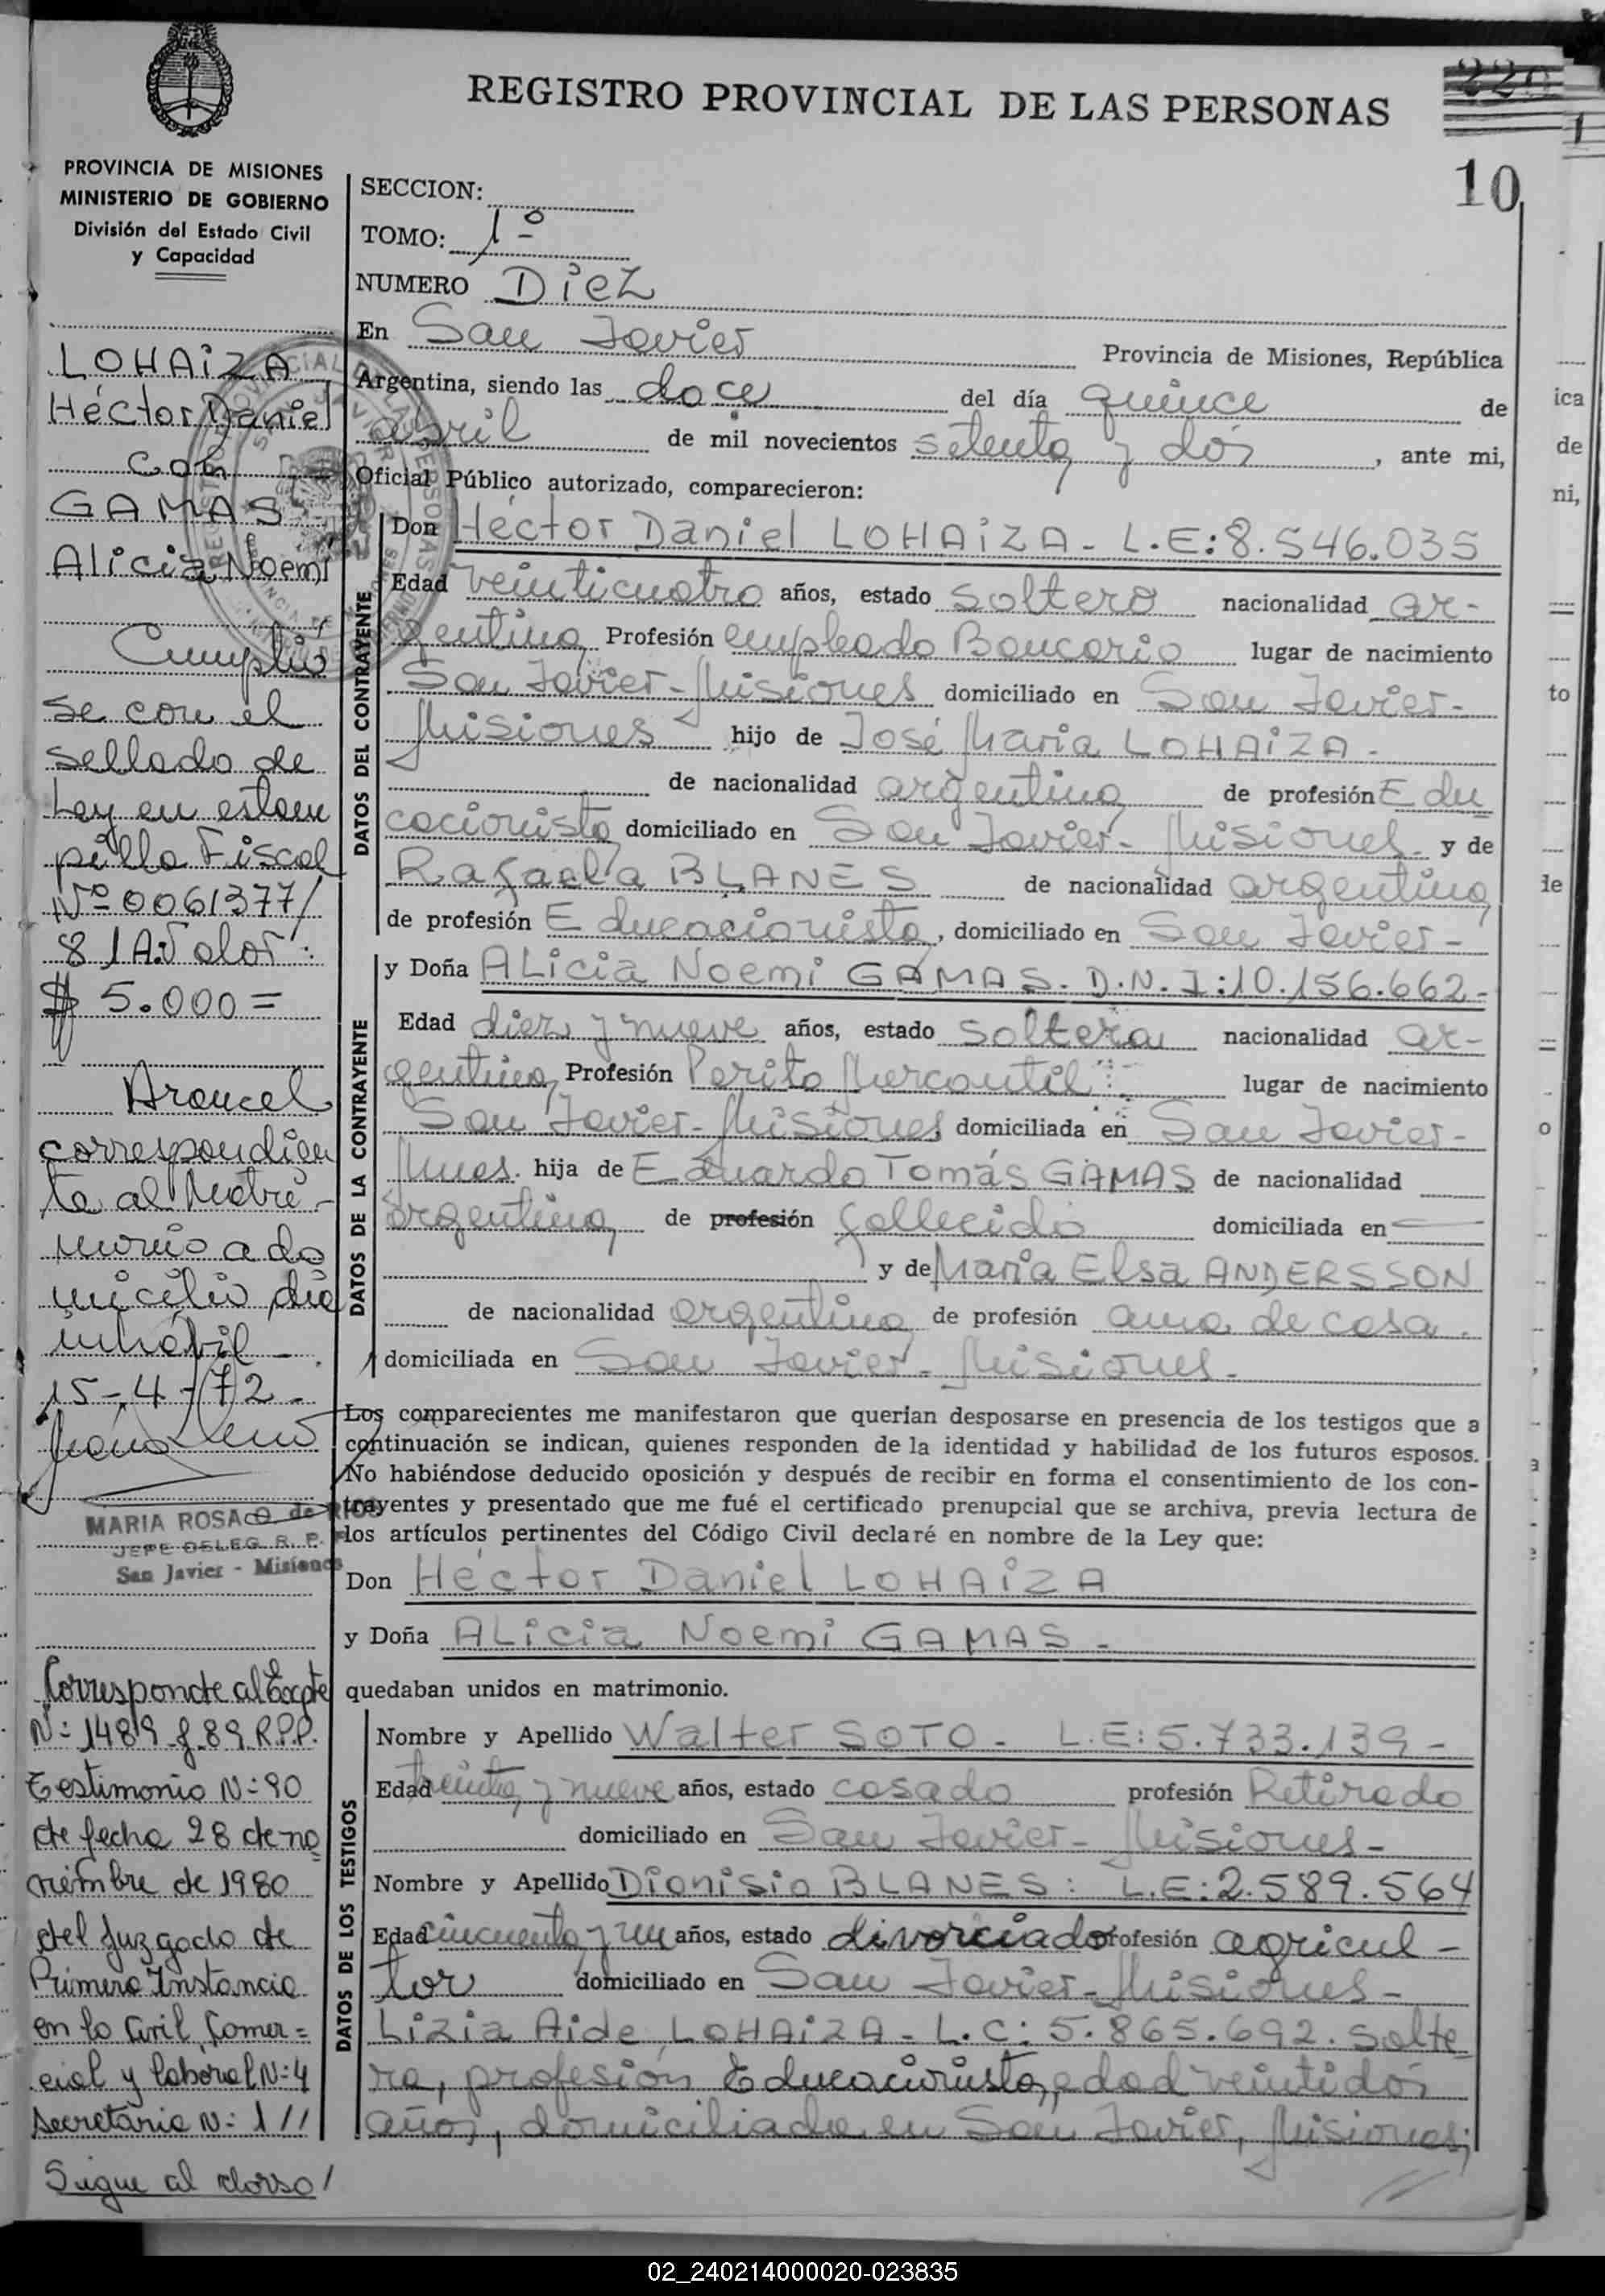 REGISTRO PROVINCIAL DE LAS PERSONAS
220
10
PROVINCIA DE MISIONES
MINISTERIO DE GOBIERNO
División del Estado Civil
y Capacidad
LOHAiZA
Héctor Daniel
con
GAMAS
Alicia Noemí
Cumplió
se con el
sellado de
Ley en estam
pilla Fiscal
Nº 0061377/
81A. Valor:
$ 5.000=
Arancel
correspondien
te al Matri-
monio a do
micilio día
inhábil-
15-4-72-
MARIA ROSA O. de RIOS
JEFE DELEG. R. P. P.
San Javier - Misiones
Corresponde al Expte
Nº 1489 f. 89 R.P.P.
Testimonio Nº 90
de fecha 28 de no
viembre de 1980
del Juzgado de
Primera Instancia
en lo Civil, Comer=
cial y laboral Nº 4
Secretaria Nº 1 //
Sigue al dorso/
SECCION:
TOMO: 1º
NUMERO Diez
En San Javier Provincia de Misiones, República
Argentina, siendo las doce del día quince de
abril de mil novecientos setenta y dós, ante mi,
Oficial Público autorizado, comparecieron:
DATOS DEL CONTRAYENTE
Don Héctor Daniel LOHAiZA- L.E:8.546.035
Edad veinticuatro años, estado soltero nacionalidad ar-
gentina Profesión empleado Bancario lugar de nacimiento
San Javier-Misiones domiciliado en San Javier-
Misiones hijo de José María LOHAiZA-
de nacionalidad argentina de profesión Edu
cacionista domiciliado en San Javier- Misiones- y de
Rafaela BLANES de nacionalidad argentina
de profesión Educacionista, domiciliado en San Javier-
DATOS DE LA CONTRAYENTE
y Doña ALicia Noemi GAMAS. D.N.I:10.156.662-
Edad diez y nueve años, estado soltera nacionalidad ar-
gentina, Profesión Perito Mercantil lugar de nacimiento
San Javier-Misiones, domiciliada en San Javier-
Mnes. hija de Eduardo Tomás GAMAS de nacionalidad
argentina de profesión fallecido domiciliada en
y de María Elsa ANDERSSON
de nacionalidad argentina de profesión ama de casa.
domiciliada en San Javier- Misiones-
Los comparecientes me manifestaron que querian desposarse en presencia de los testigos que a
continuación se indican, quienes responden de la identidad y habilidad de los futuros esposos.
No habiéndose deducido oposición y después de recibir en forma el consentimiento de los con-
trayentes y presentado que me fué el certificado prenupcial que se archiva, previa lectura de
los artículos pertinentes del Código Civil declaré en nombre de la Ley que:
Don Héctor Daniel LOHAiZA
y Doña ALicia Noemi GAMAS-
quedaban unidos en matrimonio.
DATOS DE LOS TESTIGOS
Nombre y Apellido Walter SOTO- L.E:5.733.139-
Edad treinta y nueve años, estado casado profesión Retirado
domiciliado en San Javier- Misiones-
Nombre y Apellido Dionisio BLANES: L.E:2.589.564
Edad cincuenta y un años, estado divorciado profesión agricul-
tor domiciliado en San Javier-Misiones-
Lizia Aide LOHAiZA- L.C: 5.865.692. solte
ra, profesión Educacionista, edad veintidós
años, domiciliada en San Javier, Misiones;
ica
de
ni,
to
de
o
02_240214000020-023835